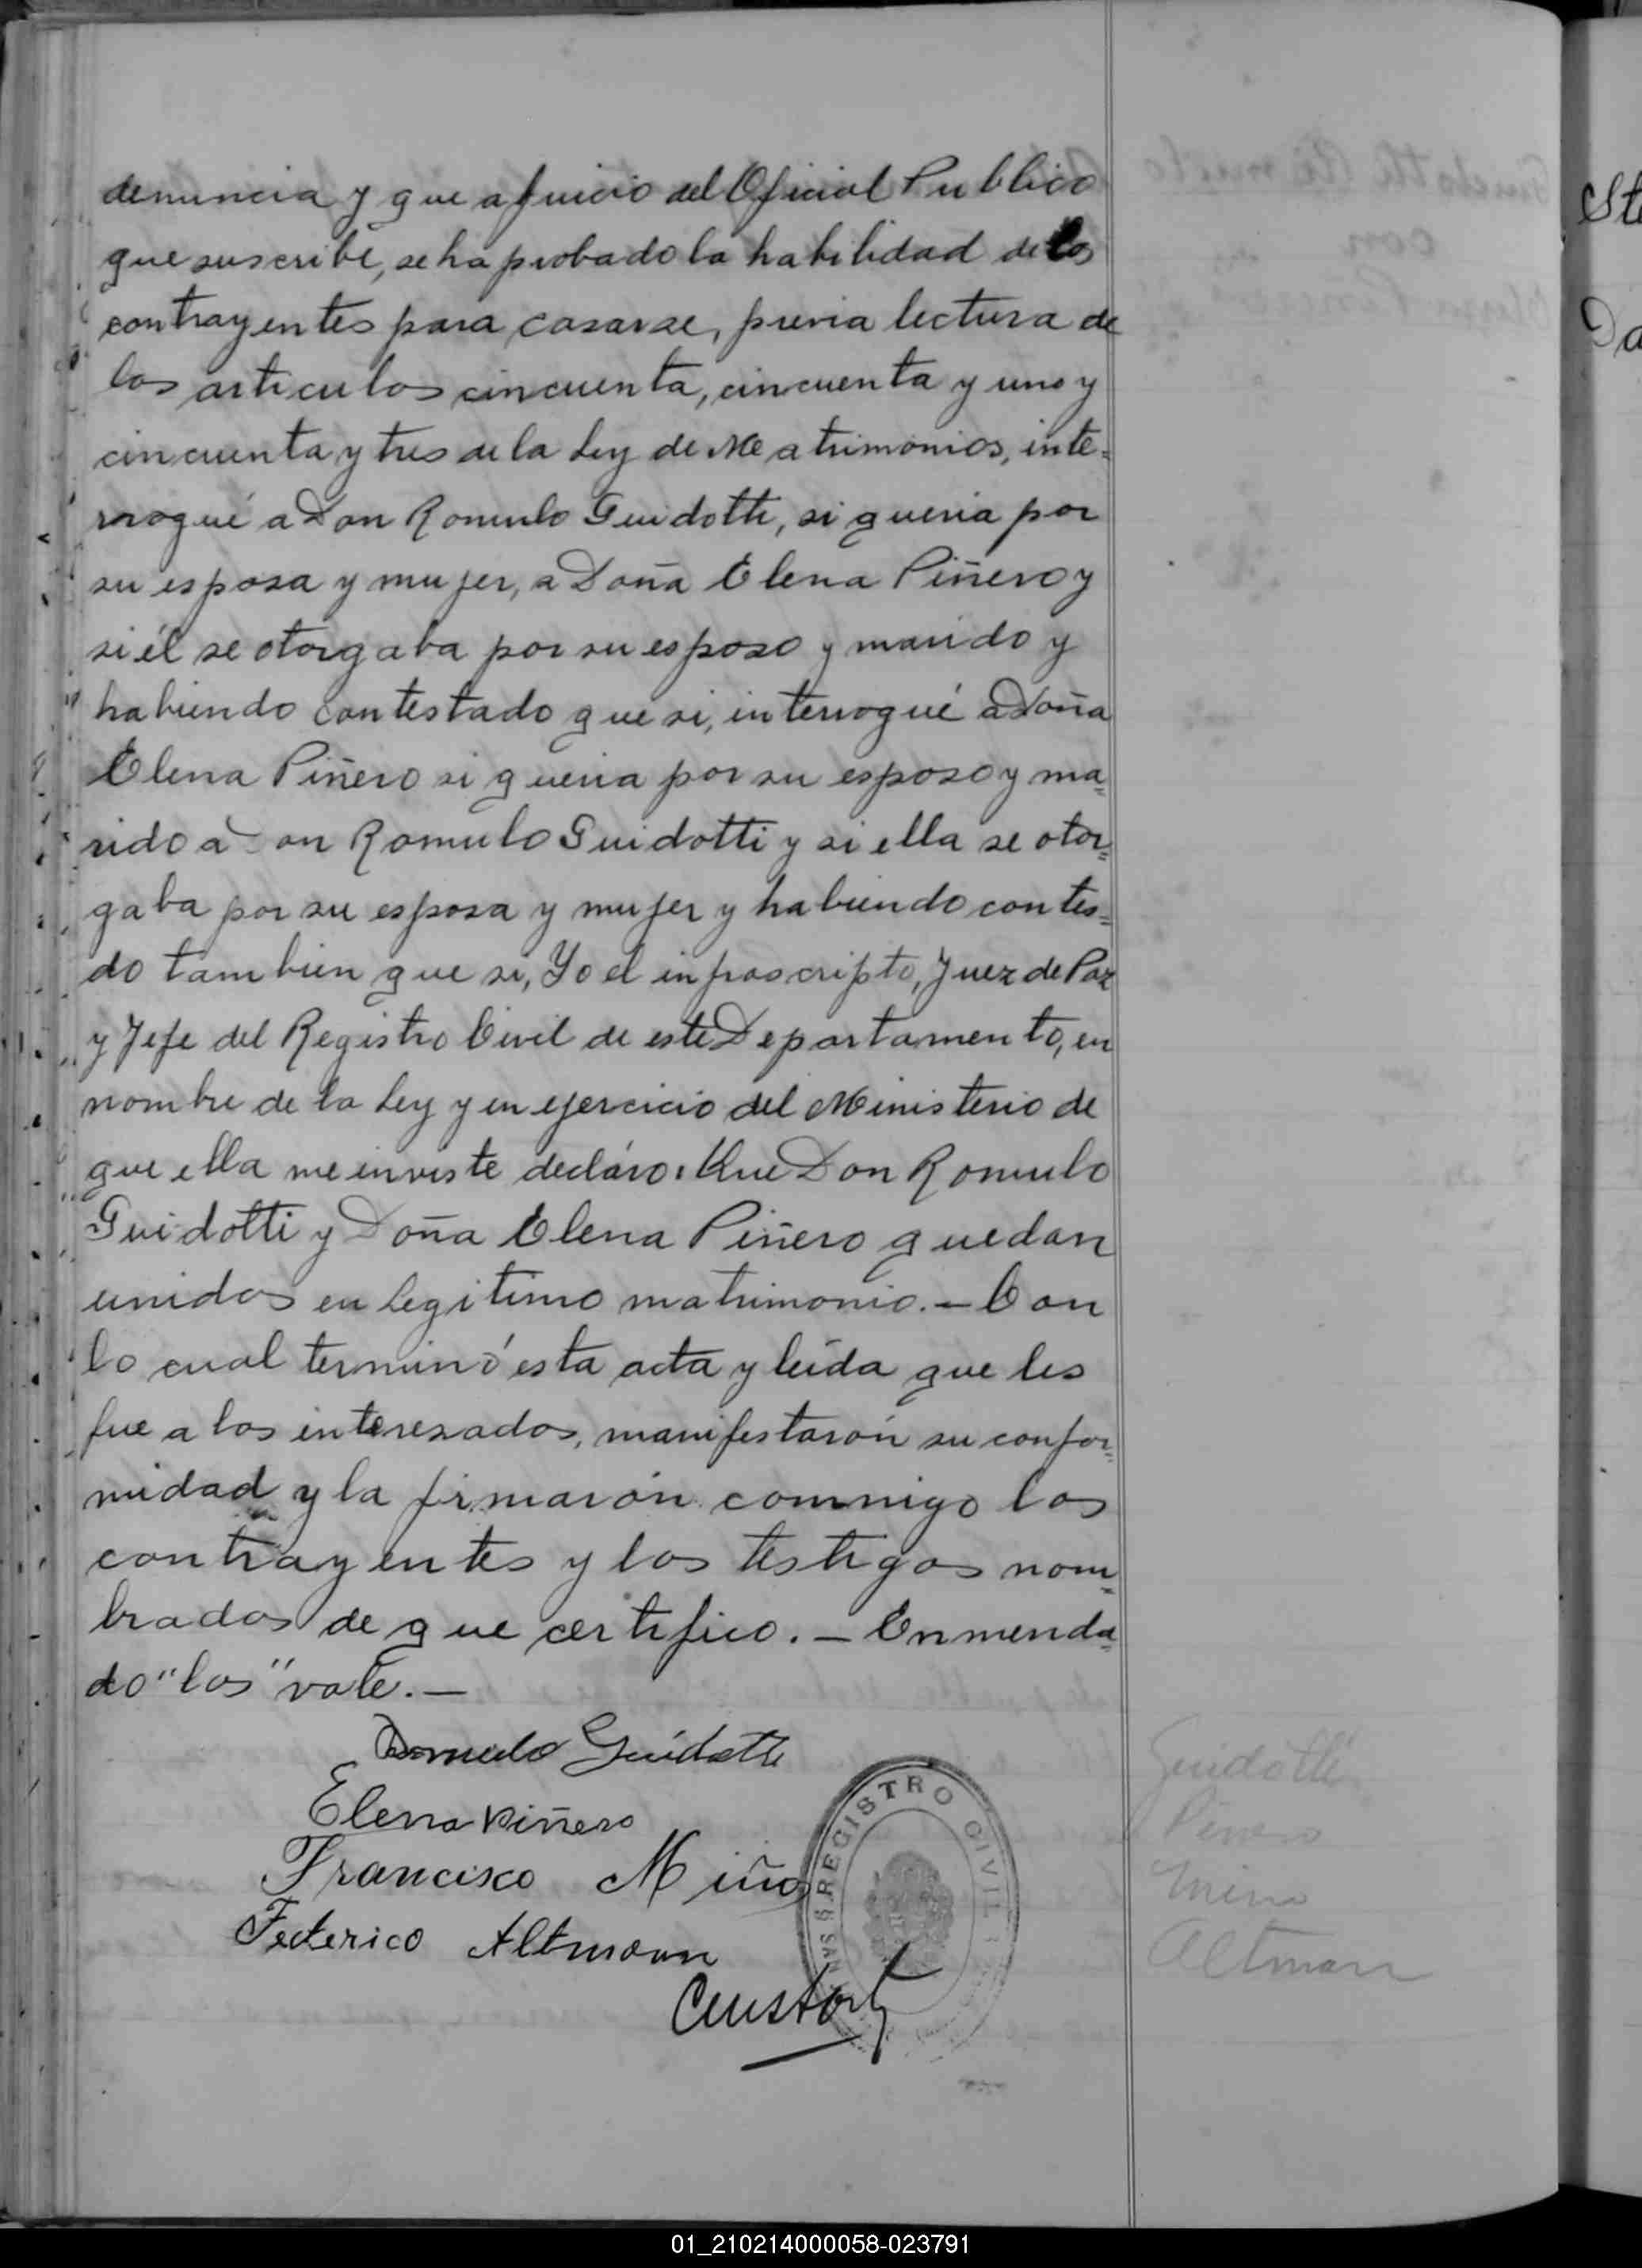 denuncia y que a juicio del Oficial Publico
que suscribe, se ha probado la habilidad de los
contrayentes para casarse, previa lectura de
los articulos cincuenta, cincuenta y uno y
cincuenta y tres de la Ley de Matrimonios, inte-
rrogué a Don Romulo Guidotti, si queria por
su esposa y mujer, a Doña Elena Piñero y
si él se otorgaba por su esposo y marido y
habiendo contestado que si, interrogué a Doña
Elena Piñero si queria por su esposo y ma-
rido a Don Romulo Guidotti y si ella se otor-
gaba por su esposa y mujer y habiendo contes-
do tambien que si, Yo el infrascripto, Juez de Paz
y Jefe del Registro Civil de este Departamento, en
nombre de la Ley y en ejercicio del Ministerio de
que ella me inviste decláro: Que Don Romulo
Guidotti y Doña Elena Piñero quedan
unidos en legitimo matrimonio. — Con
lo cual terminó esta acta y leída que les
fue a los interesados, manifestarón su confor-
midad y la firmarón conmigo los
contrayentes y los testigos nom-
brados de que certifico. — Enmenda-
do "los" vale. —
Romulo Guidotti
Elena Piñero
Francisco Miño
Federico Altmann
REGISTRO CIVIL
Guidotti
Piñero
Mino
Altman
St
Da
01_210214000058-023791